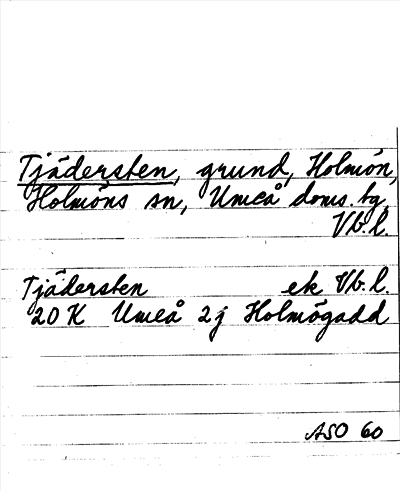 Tjädersten, grund, Holmön,
Holmöns sn, Umeå doms. tg
Vb.l.
Tjädersten ek Vb.l.
20 K Umeå 2j Holmögadd
ASO 60